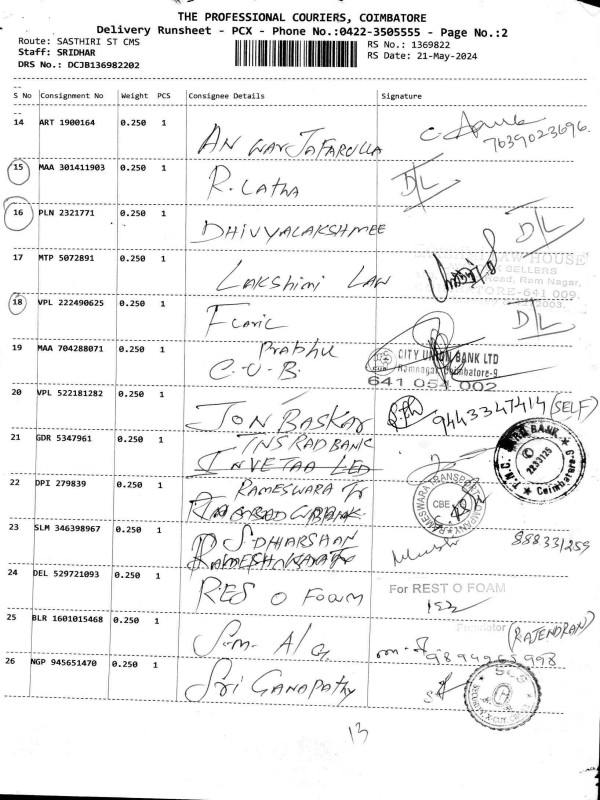 THE PROFESSIONAL COURIERS, COIMBATORE
Delivery Runsheet - PCX - Phone No.:0422-3505555 - Page No.:2
Route: SASTHIRI ST CMS
RS No.: 1369822
Staff: SRIDHAR
RS Date: 21-May-2024
DRS No.: DCJB136982202
S No Consignment No Weight PCS Consignee Details Signature
14 ART 1900164 0.250 1
7639023696.
ANWAR JAFARULLA
15 MAA 301411903 0.250 1
R. Latha D/L
16 PLN 2321771 0.250 1
DHIVYALAKSHMEE D/L
17 MTP 5072891 0.250 1
LAW HOUSE
SELLERS
Lakshimi LAW
Ram Nagar,
STORE-641 009.
18 VPL 222490625 0.250 1
D/L
19 MAA 704288071 0.250 1
Prabhu
C.U.B.
CITY UNION BANK LTD
Ramnagar, Coimbatore-9
641 054 002
20 VPL 522181282 0.250 1
JON BASKAR
9443347414 (SELF)
21 GDR 5347961 0.250 1
Coimbatore-9
22 DPI 279839 0.250 1
RAMESWARA Tr
RAMESWARA TRANSPORT COMPANY
CBE
23 SLM 346398967 0.250 1
SDHARSHAN
888331259
24 DEL 529721093 0.250 1
RES O Foam
For REST O FOAM
25 BLR 1601015468 0.250 1
(RAJENDRAN)
26 NGP 945651470 0.250 1
Sri GANAPATHY
SCS
13